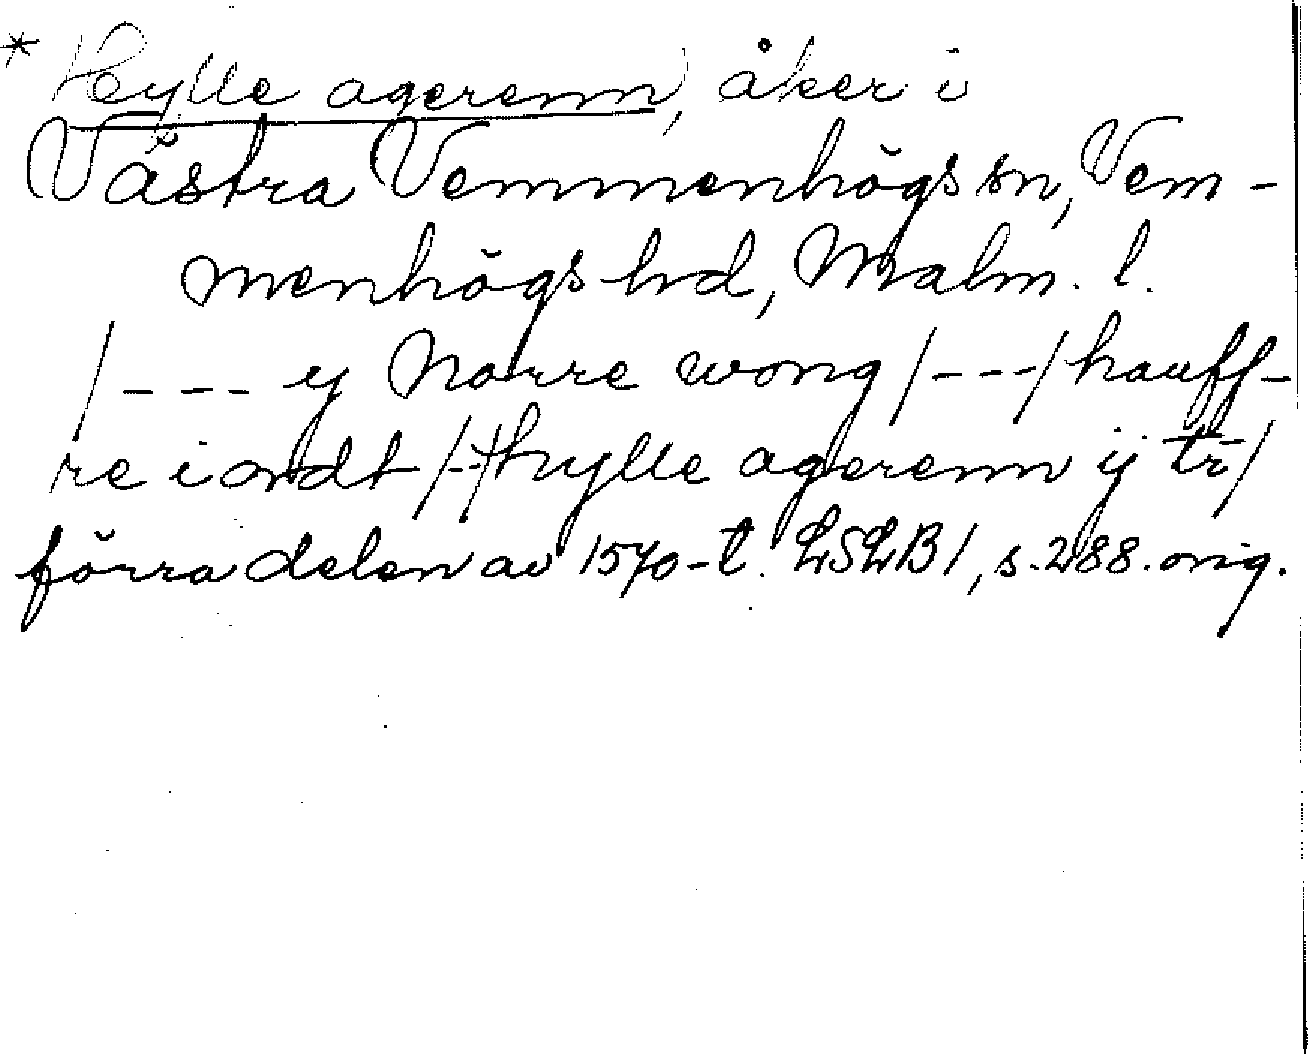 * Hylle agerenn, åker i
Västra Vemmenhögs sn, Vem-
menhögs hd, Malm. l.
/--- y Norre wong /---/ hauff-
re iordt /--/ hylle agerenn ij tr̄/
förra delen av 1570-t. LSLB1, s. 288. orig.